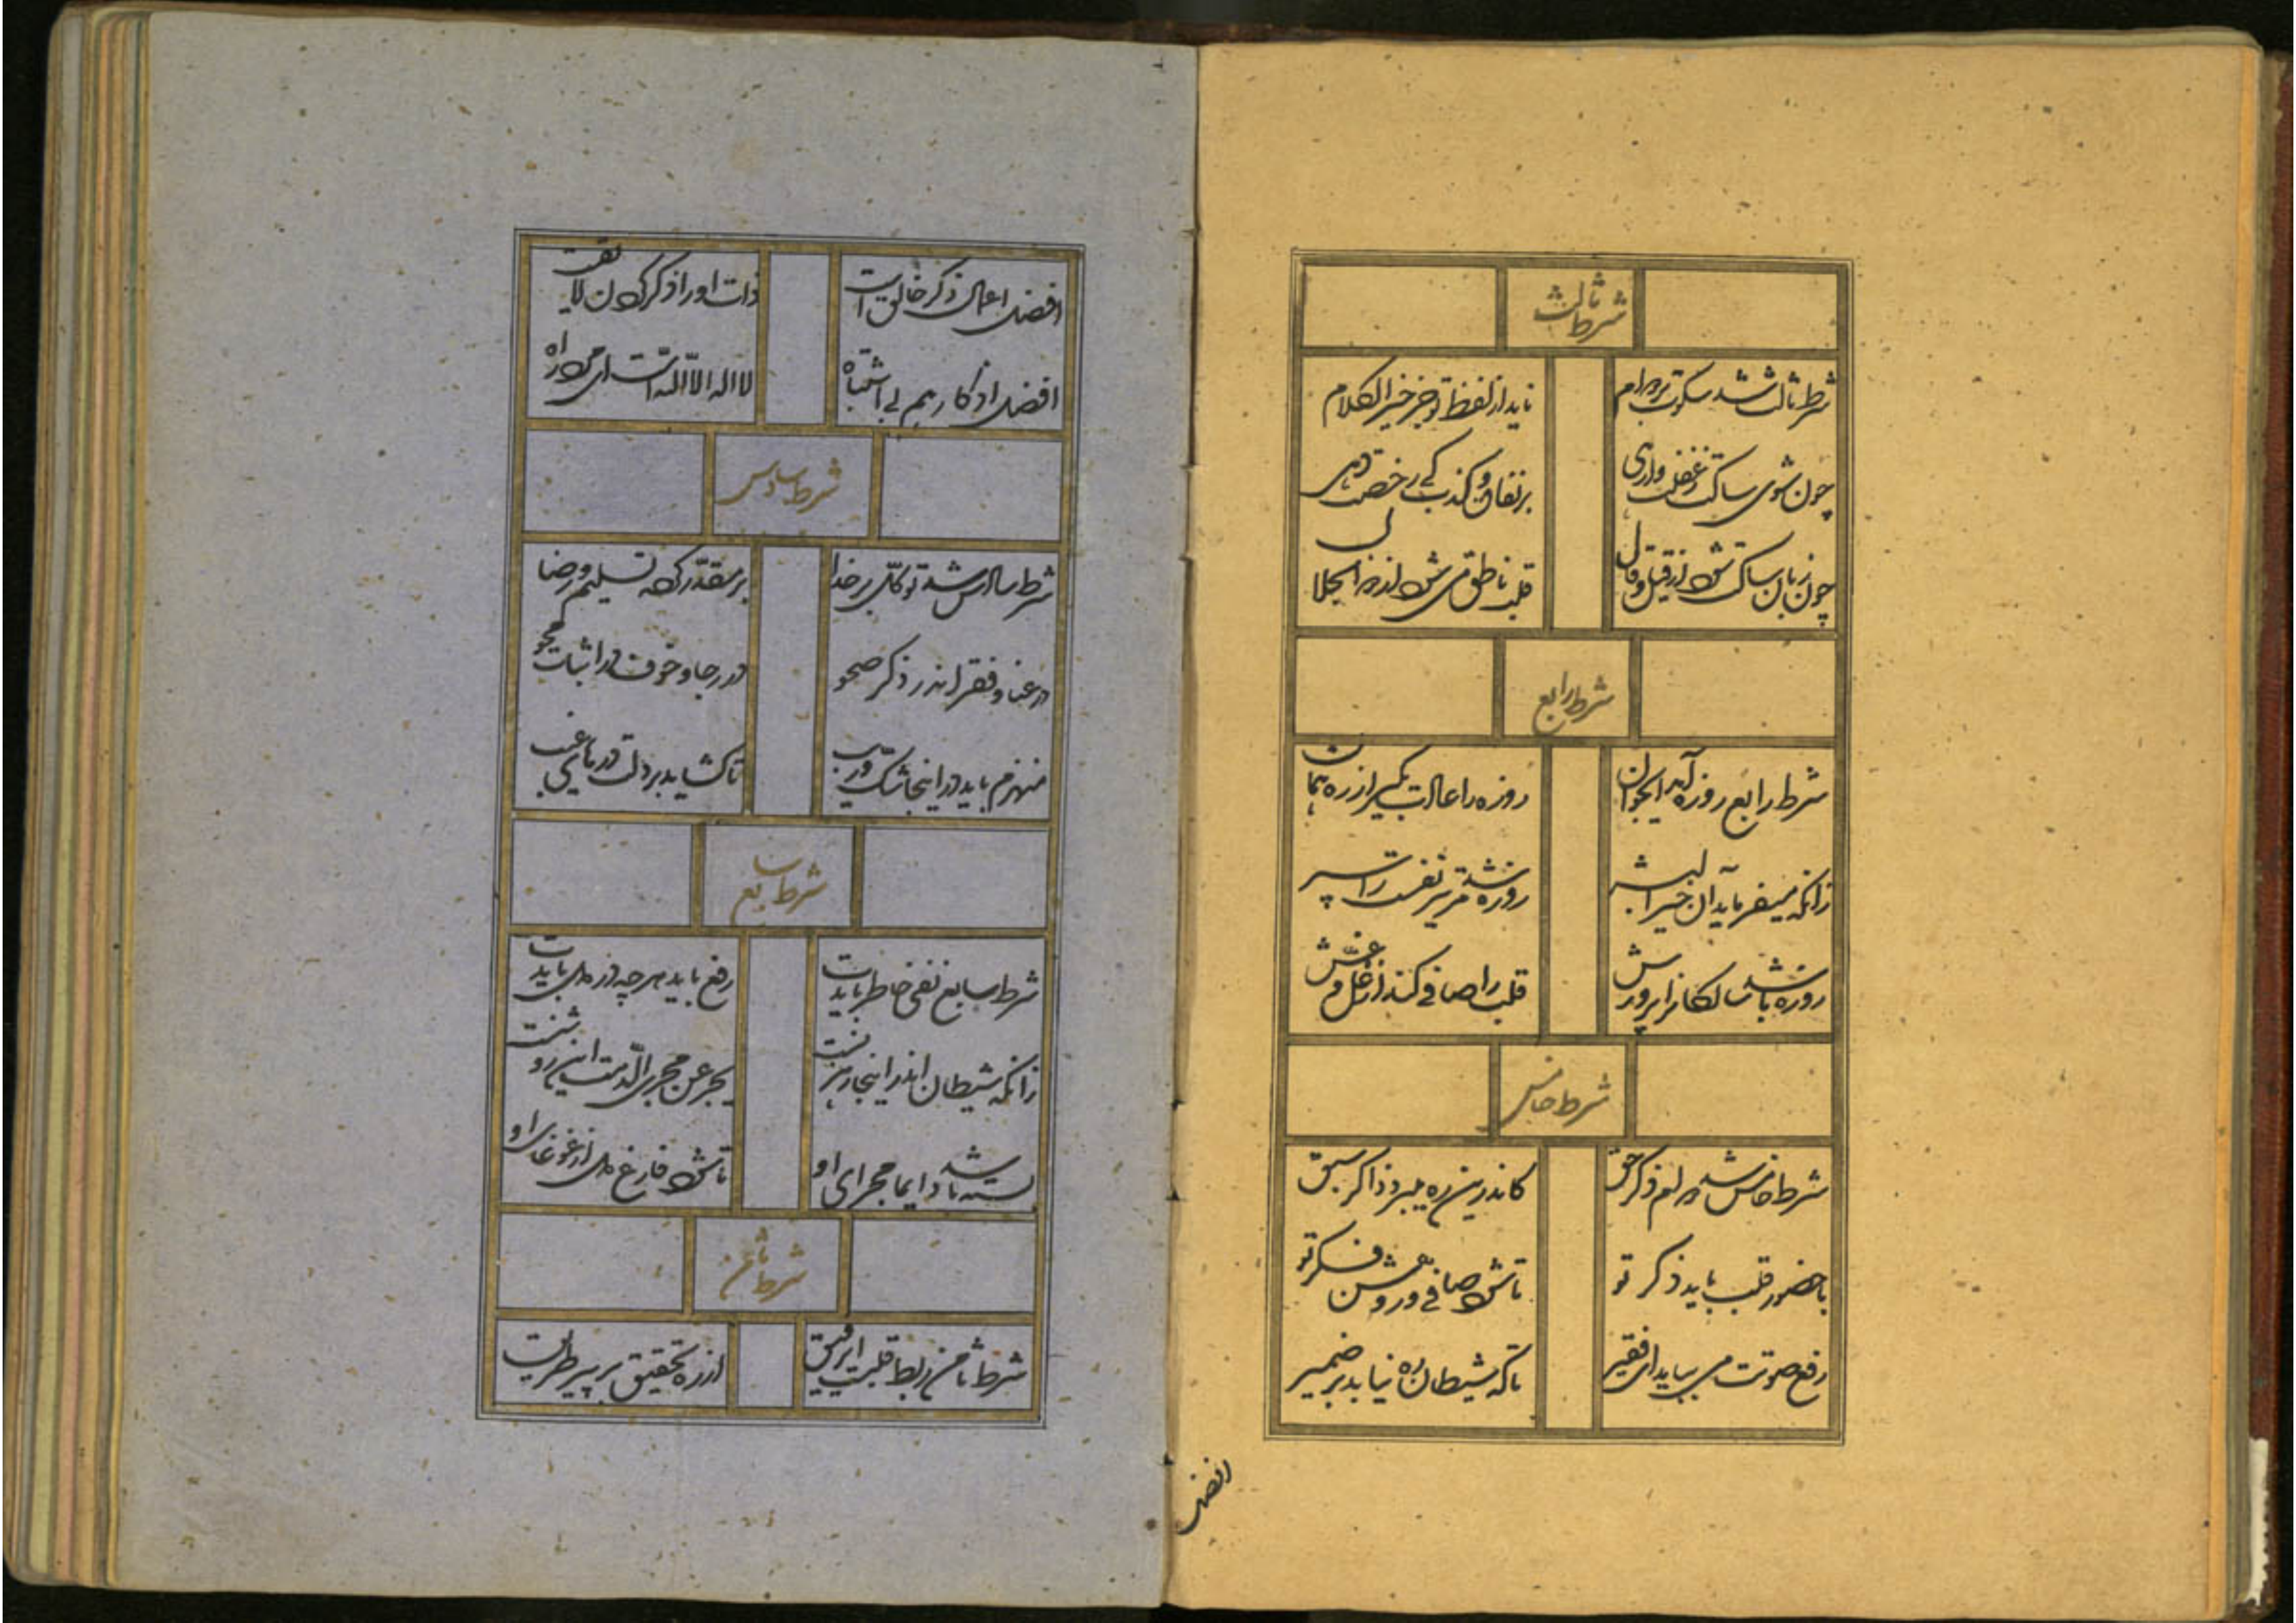 شرط ثالث
شرط ثالث شد سکوت بر دوام
ناید از لفظ تو جز خیر الکلام
چون شوی ساکت ز غفلت وارهی
بر نفاق و کذب کی رخصت دهی
چون زبان ساکت شود از قیل و قال
قلب ناطق می شود اندر
شرط رابع
شرط رابع روزه آمد ای جوان
روزه را عادت بگیر از ره بمان
زانکه میفرماید آن خیر البشر
روزه شد مر تیر نفست را سپر
روزه باشد سالکانرا پرورش
قلب را صافی کند از غل و غش
شرط خامس
شرط خامس شد دوام ذکر حق
کاندرین ره میبرد ذاکر سبق
با حضور قلب باید ذکر تو
تا شود صافی و روشن فکر تو
رفع صوتت می بباید ای فقیر
تا که شیطان ره نیابد بر ضمیر
افضل
افضل اعمال ذکر خالق است
ذات او را ذکر کردن لایقست
افضل اذکار هم بی اشتباه
لا اله الا الله است ای مرد راه
شرط سادس
شرط سادس شد توکل بر خدا
بر مقدر کرده تسلیم و رضا
در غنا و فقر اندر ذکر صحو
در رجا و خوف در اثبات محو
منهزم باید در اینجا شک و ریب
تا گشاید بر دلت درهای غیب
شرط سابع
شرط سابع نفی خاطر بایدت
رفع باید هر چه در دل بایدت
زانکه شیطان اندر اینجا رهزنست
یجر عن مجری الدمت این روشنست
بسته باشد دایما مجرای او
تا شود فارغ دل از غوغای او
شرط ثامن
شرط ثامن ربط قلبت ای رفیق
از ره تحقیق بر پیر طریق